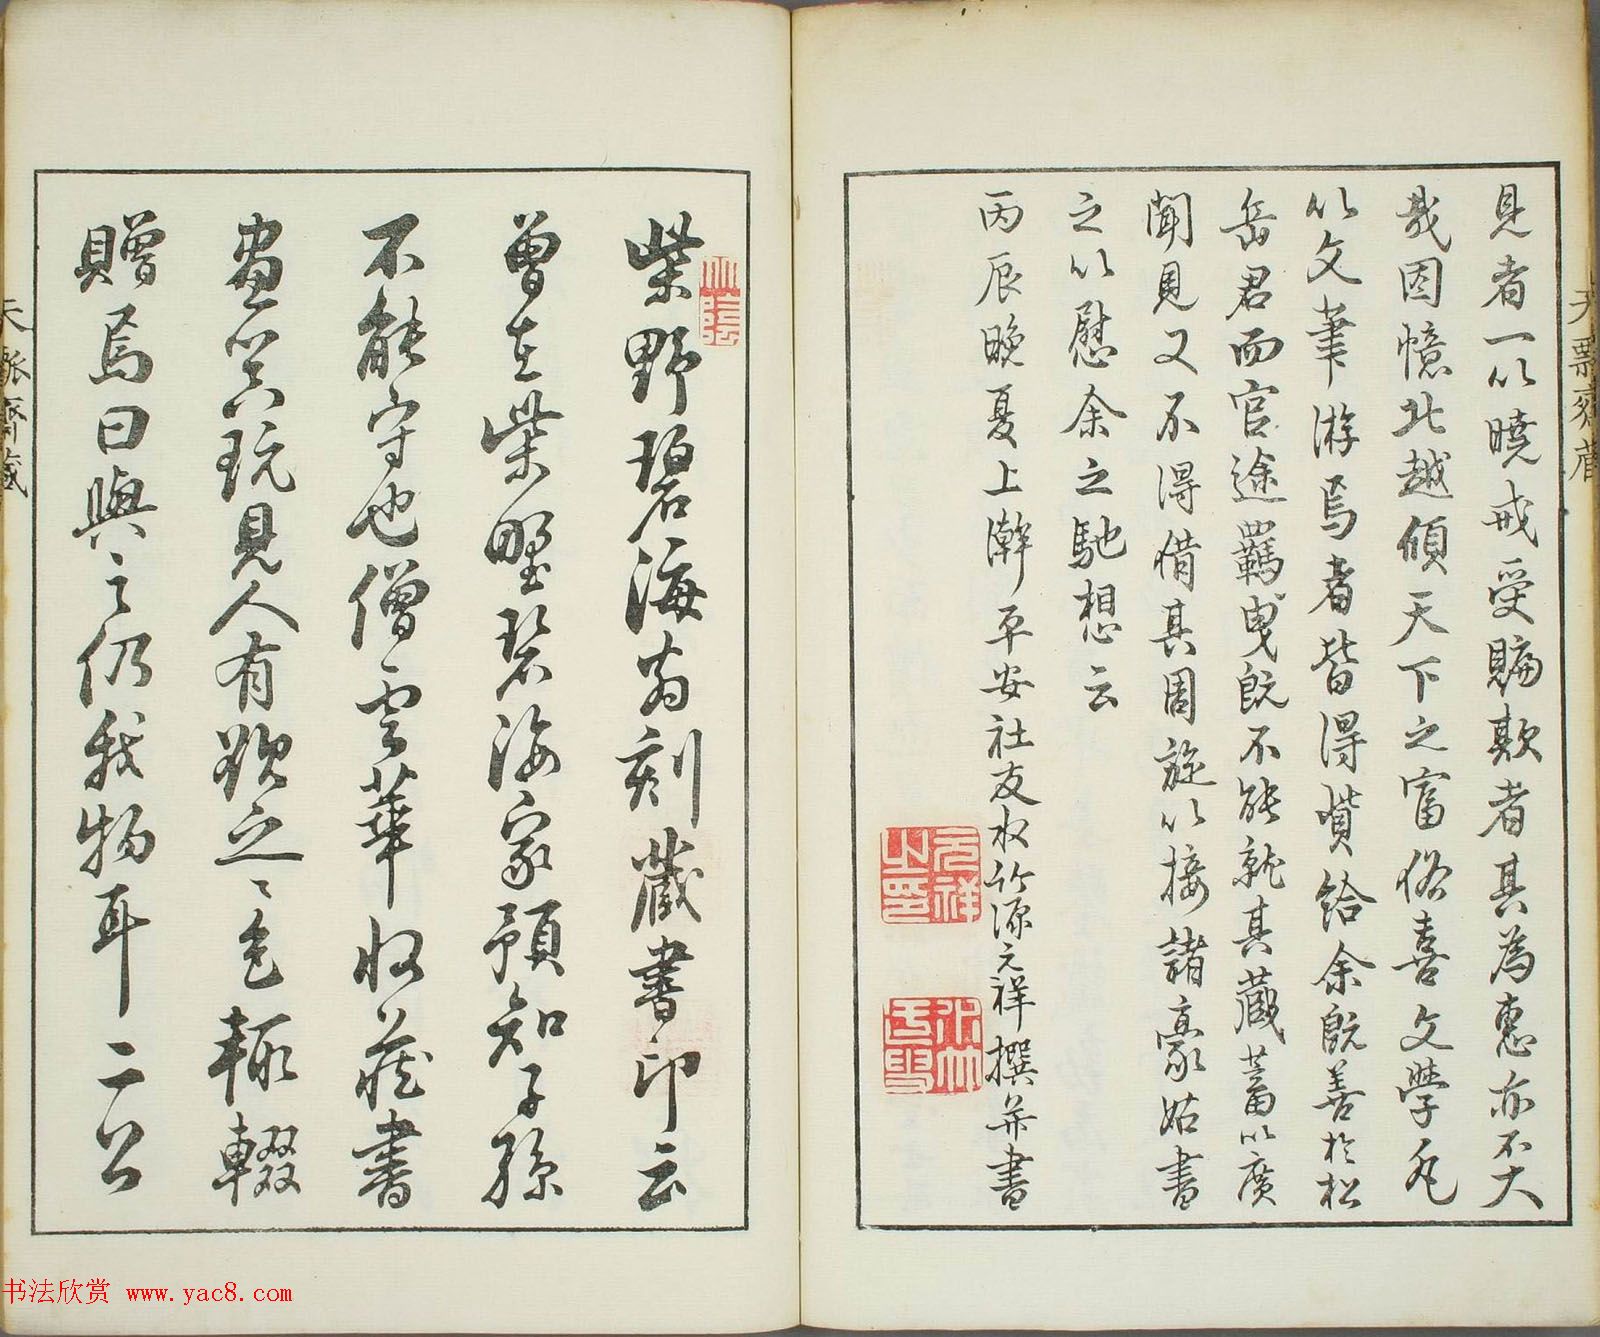 見者一以曉戒受騙欺者其為惠亦不大
哉因憶北越傾天下之富俗喜文學凡
以文筆游焉者皆得贄給余既善於松
岳君而官途羈曳既不能就其藏蓄以廣
聞見又不得借其周旋以接諸豪姑書
之以慰余之馳想云
丙辰晚夏上澣平安社友水竹源元祥撰并書
元祥之印
天
齋藏
柴野碧海翁刻藏書印云
曾在柴野碧海家預知子孫
不能守也僧雲華收藏書
畫以其玩見人有欲之之色輒輟
贈焉曰與之仍我物耳二公
天
齋藏
书法欣赏 www.yac8.com